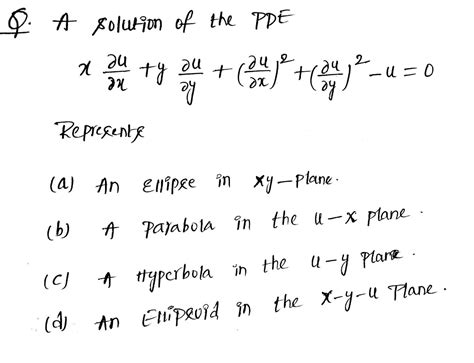 Q. A solution of the PDE
x ∂u/∂x + y ∂u/∂y + (∂u/∂x)² + (∂u/∂y)² − u = 0
Represents
(a) An Ellipse in xy-plane.
(b) A Parabola in the u-x plane.
(c) A Hyperbola in the u-y plane.
(d) An Ellipsoid in the x-y-u Plane.